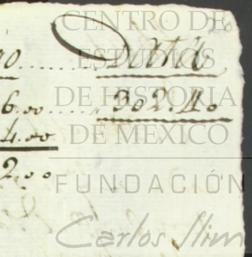 CENTRO DE
ESTUDIOS
DE HISTORIA
DE MEXICO
FUNDACIÓN
Carlos Slim
10......
6.00...... 302.40
4.00
2.00